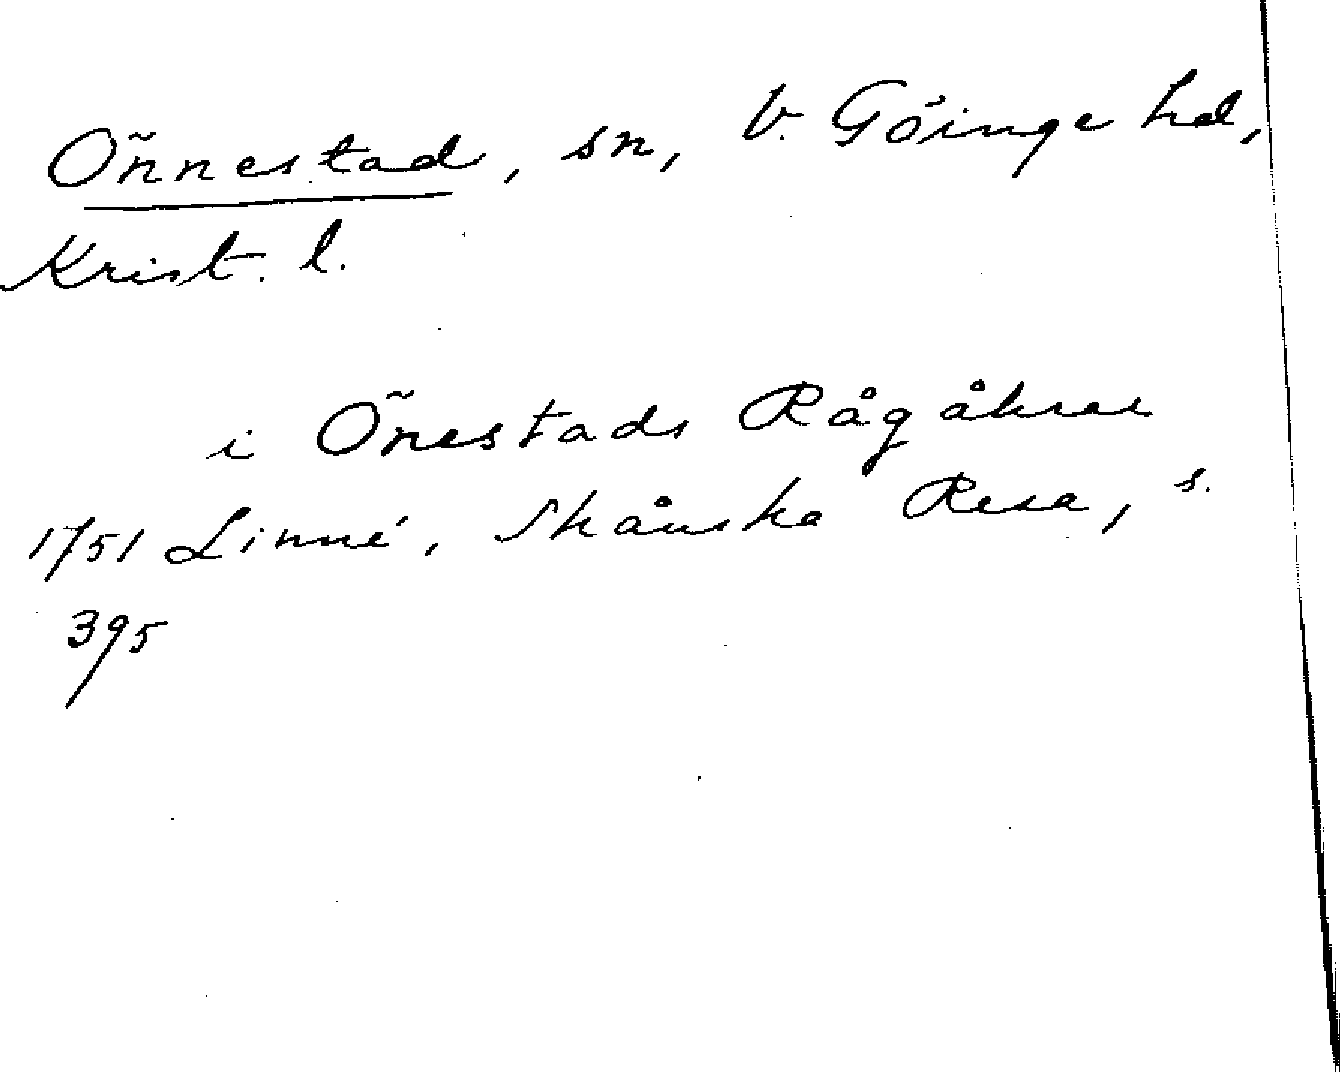 Önnestad, sn, V. Göinge hd,
Krist. l.
i Önestads Rågåkrar
1751 Linné, Skånska Resa, s.
395